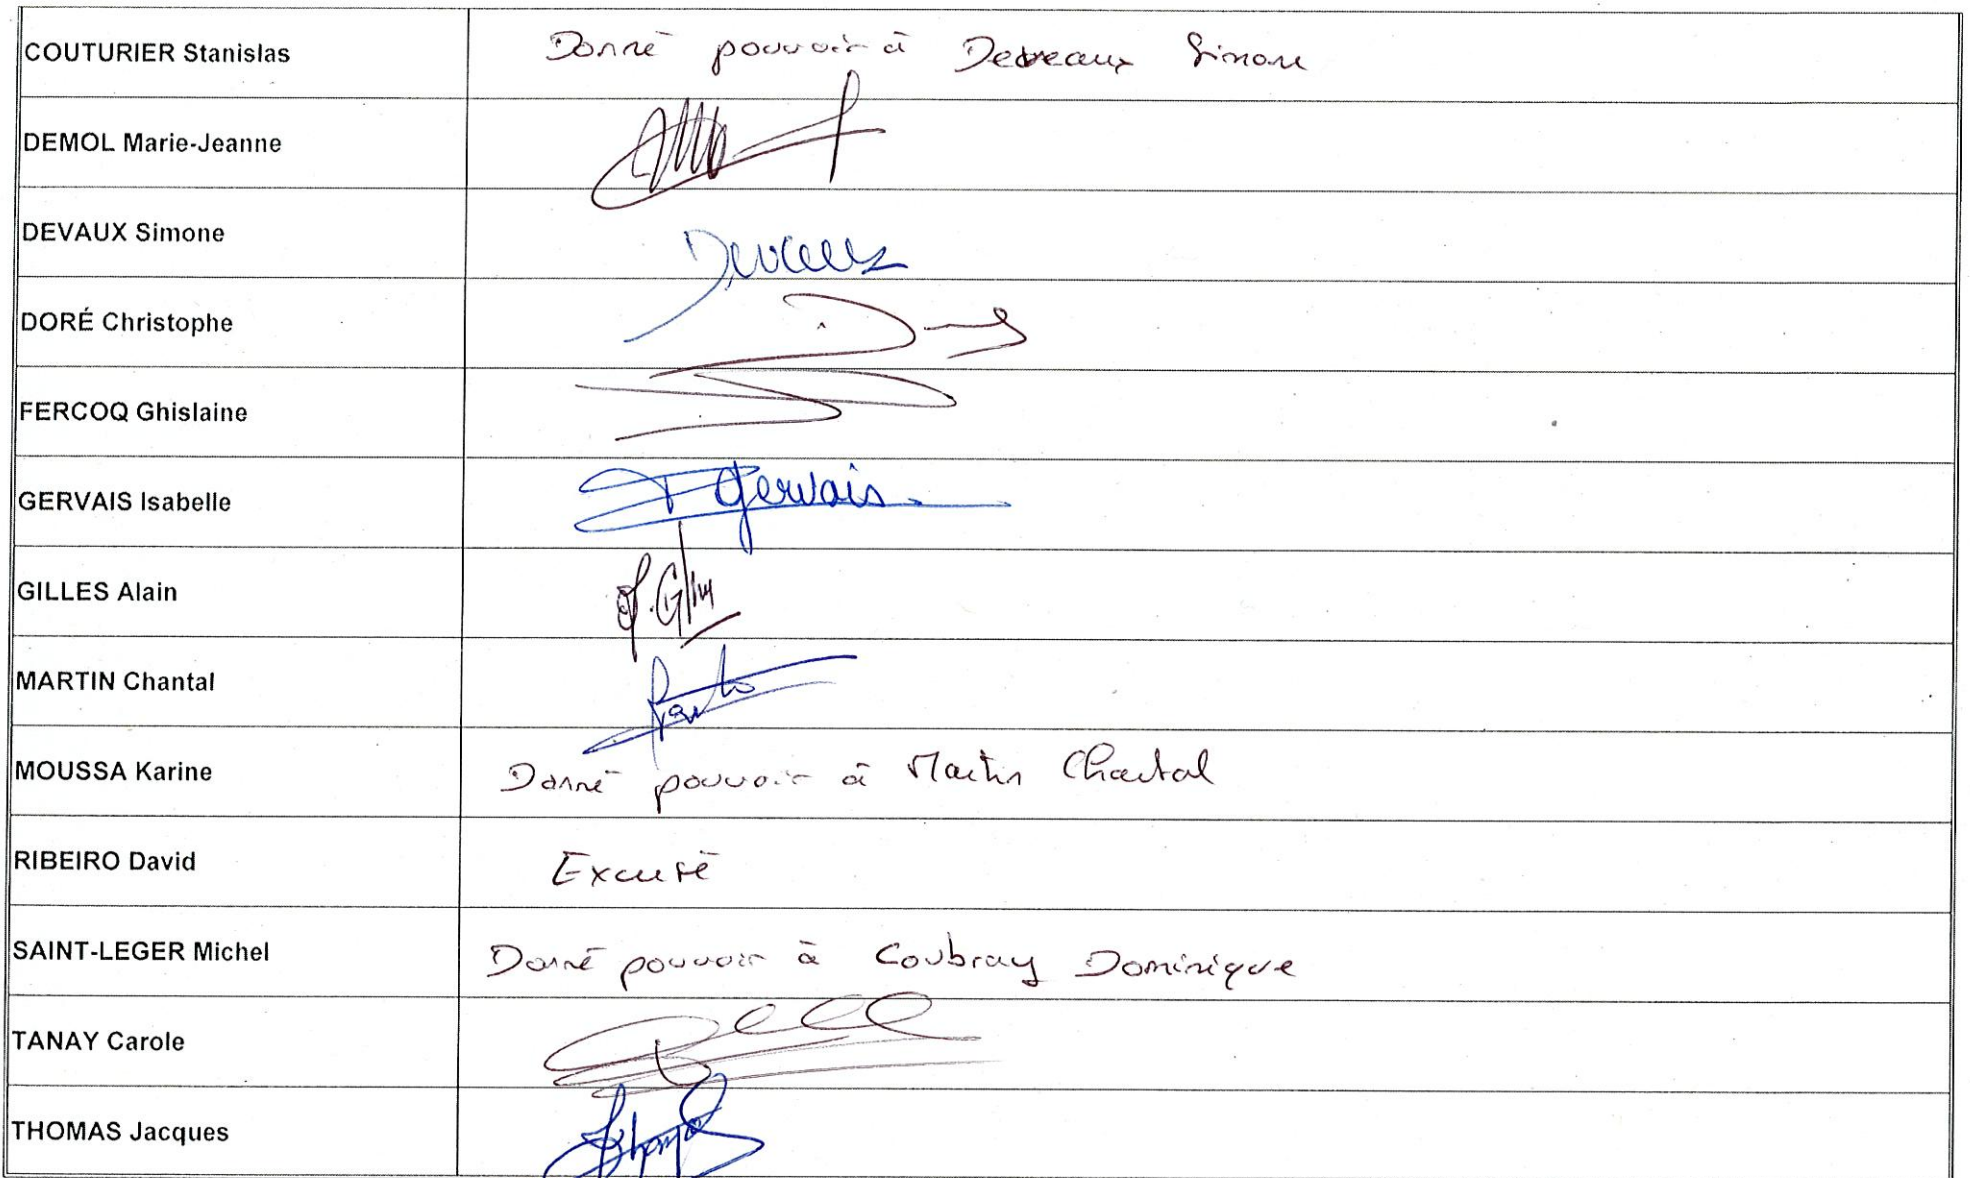 COUTURIER Stanislas Donné pouvoir à Deveaux Simone
DEMOL Marie-Jeanne
DEVAUX Simone
DORÉ Christophe
FERCOQ Ghislaine
GERVAIS Isabelle Gervais
GILLES Alain
MARTIN Chantal
MOUSSA Karine Donné pouvoir à Martin Chantal
RIBEIRO David Excusé
SAINT-LEGER Michel Donné pouvoir à Coubray Dominique
TANAY Carole
THOMAS Jacques